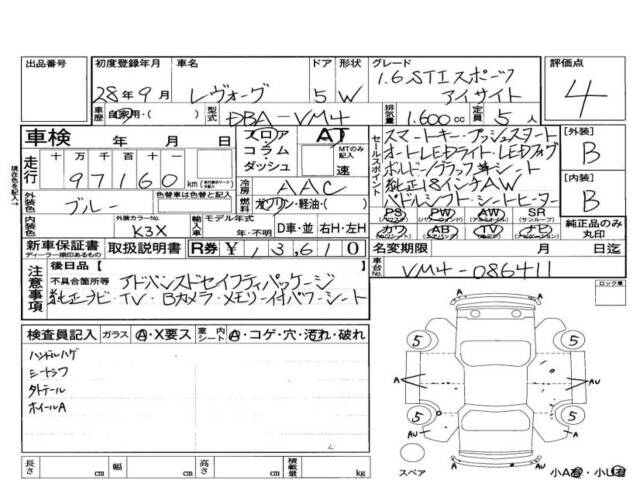 出品番号 初度登録年月 車名 ドア 形状 グレード 評価点
28年9月 レヴォーグ 5 W 1.6 STI スポーツ アイサイト 4
車歴 自家用・( ) 型式 DBA-VM4 排気量 1.600cc 定員 5人
車検 年 月 日 フロア コラム ダッシュ AT MTのみ記入 速
セールスポイント
スマートキー・プッシュスタート
オートLEDライト・LEDフォグ
ボルドー/ブラック革シート
純正18インチAW
パドルシフト・シートヒーター
[外装] B
[内装] B
現在色を記入→
走行 十万千百十一 97160 km
冷房 AAC
外装色 ブルー 色替車は色替と記入 燃料 ガソリン・軽油・( )
PS PW AW SR
カワ AB TV ナビ
純正品のみ丸印
内装色 外装カラーNo. K3X 輸入車 モデル年式 年・不明 D車・並 右H・左H
新車保証書 ディーラー捺印あるもの 取扱説明書 R券 ¥13,610
名変期限 月 日迄
車台No. VM4-086411
注意事項 後日品【
不具合箇所等 アドバンスドセイフティパッケージ
純正ナビ・TV・Bカメラ・メモリー付パワーシート
ロック車
検査員記入 ガラス A・X要ス 室内シート A・コゲ・穴・汚れ・破れ
ハンドルハゲ
シートシワ
タトテール
ホイールA
5 5
A A AU
5 5
AU A A AU
スペア 小A有・小U有
長さ cm 幅 cm 高さ cm 積載量 kg